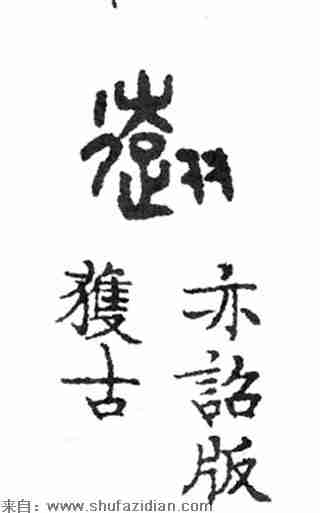 亦詔版
獲古
来自：www.shufazidian.com